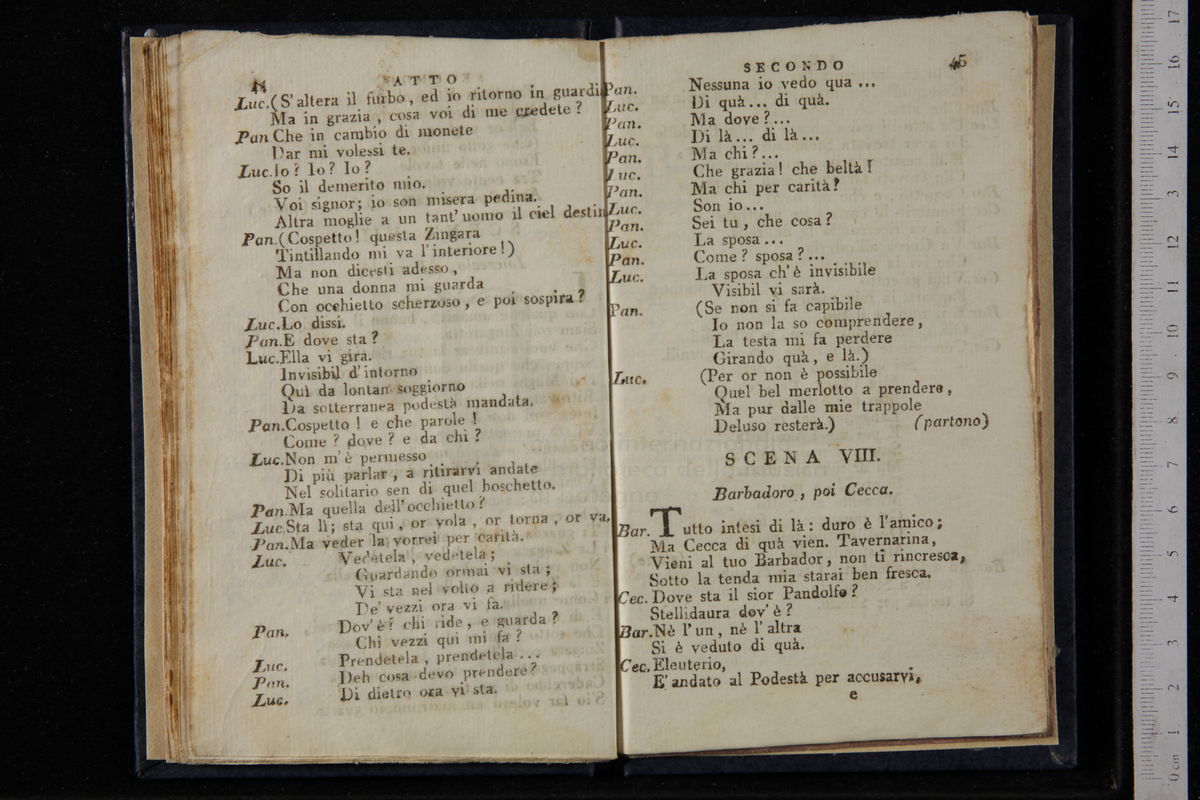 ATTO
Luc.(S'altera il furbo, ed io ritorno in guardi
Ma in grazia, cosa voi di me credete?
Pan Che in cambio di monete
Dar mi volessi te.
Luc.Io? Io? Io?
So il demerito mio.
Voi signor; io son misera pedina.
Altra moglie a un tant'uomo il ciel destin
Pan.(Cospetto! questa Zingara
Tintillando mi va l'interiore!)
Ma non dicesti adesso,
Che una donna mi guarda
Con occhietto scherzoso, e poi sospira?
Luc.Lo dissi.
Pan.E dove sta?
Luc.Ella vi gira.
Invisibil d'intorno
Quì da lontan soggiorno
Da sotterranea podestà mandata.
Pan.Cospetto! e che parole!
Come? dove? e da chi?
Luc.Non m'è permesso
Di più parlar, a ritirarvi andate
Nel solitario sen di quel boschetto.
Pan.Ma quella dell'occhietto?
Luc.Sta lì; sta qui, or vola, or torna, or va.
Pan.Ma veder la vorrei per carità.
Luc. Vedetela, vedetela;
Guardando ormai vi sta;
Vi sta nel volto a ridere;
De' vezzi ora vi fa.
Pan. Dov'è? chi ride, e guarda?
Chi vezzi qui mi fa?
Luc. Prendetela, prendetela...
Pan. Deh cosa devo prendere?
Luc. Di dietro ora vi sta.
SECONDO 45
Pan. Nessuna io vedo qua...
Luc. Di quà... di quà.
Pan. Ma dove?...
Luc. Di là... di là...
Pan. Ma chi?...
Luc. Che grazia! che beltà!
Pan. Ma chi per carità?
Luc. Son io...
Pan. Sei tu, che cosa?
Luc. La sposa...
Pan. Come? sposa?...
Luc. La sposa ch'è invisibile
Visibil vi sarà.
Pan. (Se non si fa capibile
Io non la so comprendere,
La testa mi fa perdere
Girando quà, e là.)
Luc. (Per or non è possibile
Quel bel merlotto a prendere,
Ma pur dalle mie trappole
Deluso resterà.) (partono)
SCENA VIII.
Barbadoro, poi Cecca.
Bar. Tutto intesi di là: duro è l'amico;
Ma Cecca di quà vien. Tavernarina,
Vieni al tuo Barbador, non ti rincresca,
Sotto la tenda mia starai ben fresca.
Cec. Dove sta il sior Pandolfo?
Stellidaura dov'è?
Bar.Nè l'un, nè l'altra
Si è veduto di quà.
Cec.Eleuterio,
E' andato al Podestà per accusarvi,
e